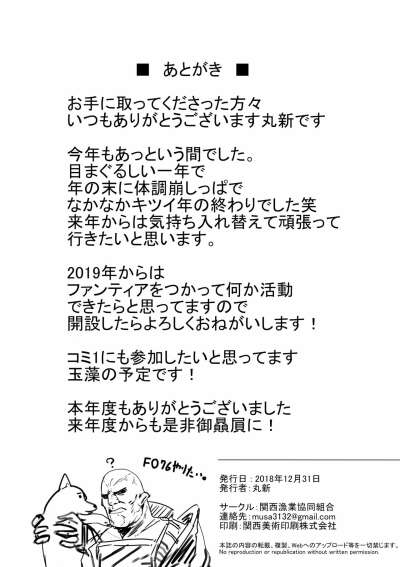 ■ あとがき ■
お手に取ってくださった方々
いつもありがとうございます丸新です
今年もあっという間でした。
目まぐるしい一年で
年の末に体調崩しっぱで
なかなかキツイ年の終わりでした笑
来年からは気持ち入れ替えて頑張って
行きたいと思います。
2019年からは
ファンティアをつかって何か活動
できたらと思ってますので
開設したらよろしくおねがいします！
コミ1にも参加したいと思ってます
玉藻の予定です！
本年度もありがとうございました
来年度からも是非御贔屓に！
?
FO76やりた…
発行日：2018年12月31日
発行者：丸新
サークル：関西漁業協同組合
連絡先：musa3132@gmail.com
印刷：関西美術印刷株式会社
本誌の内容の転載、複製、Webへのアップロード等を一切禁じます。
No reproduction or republication without written permission.